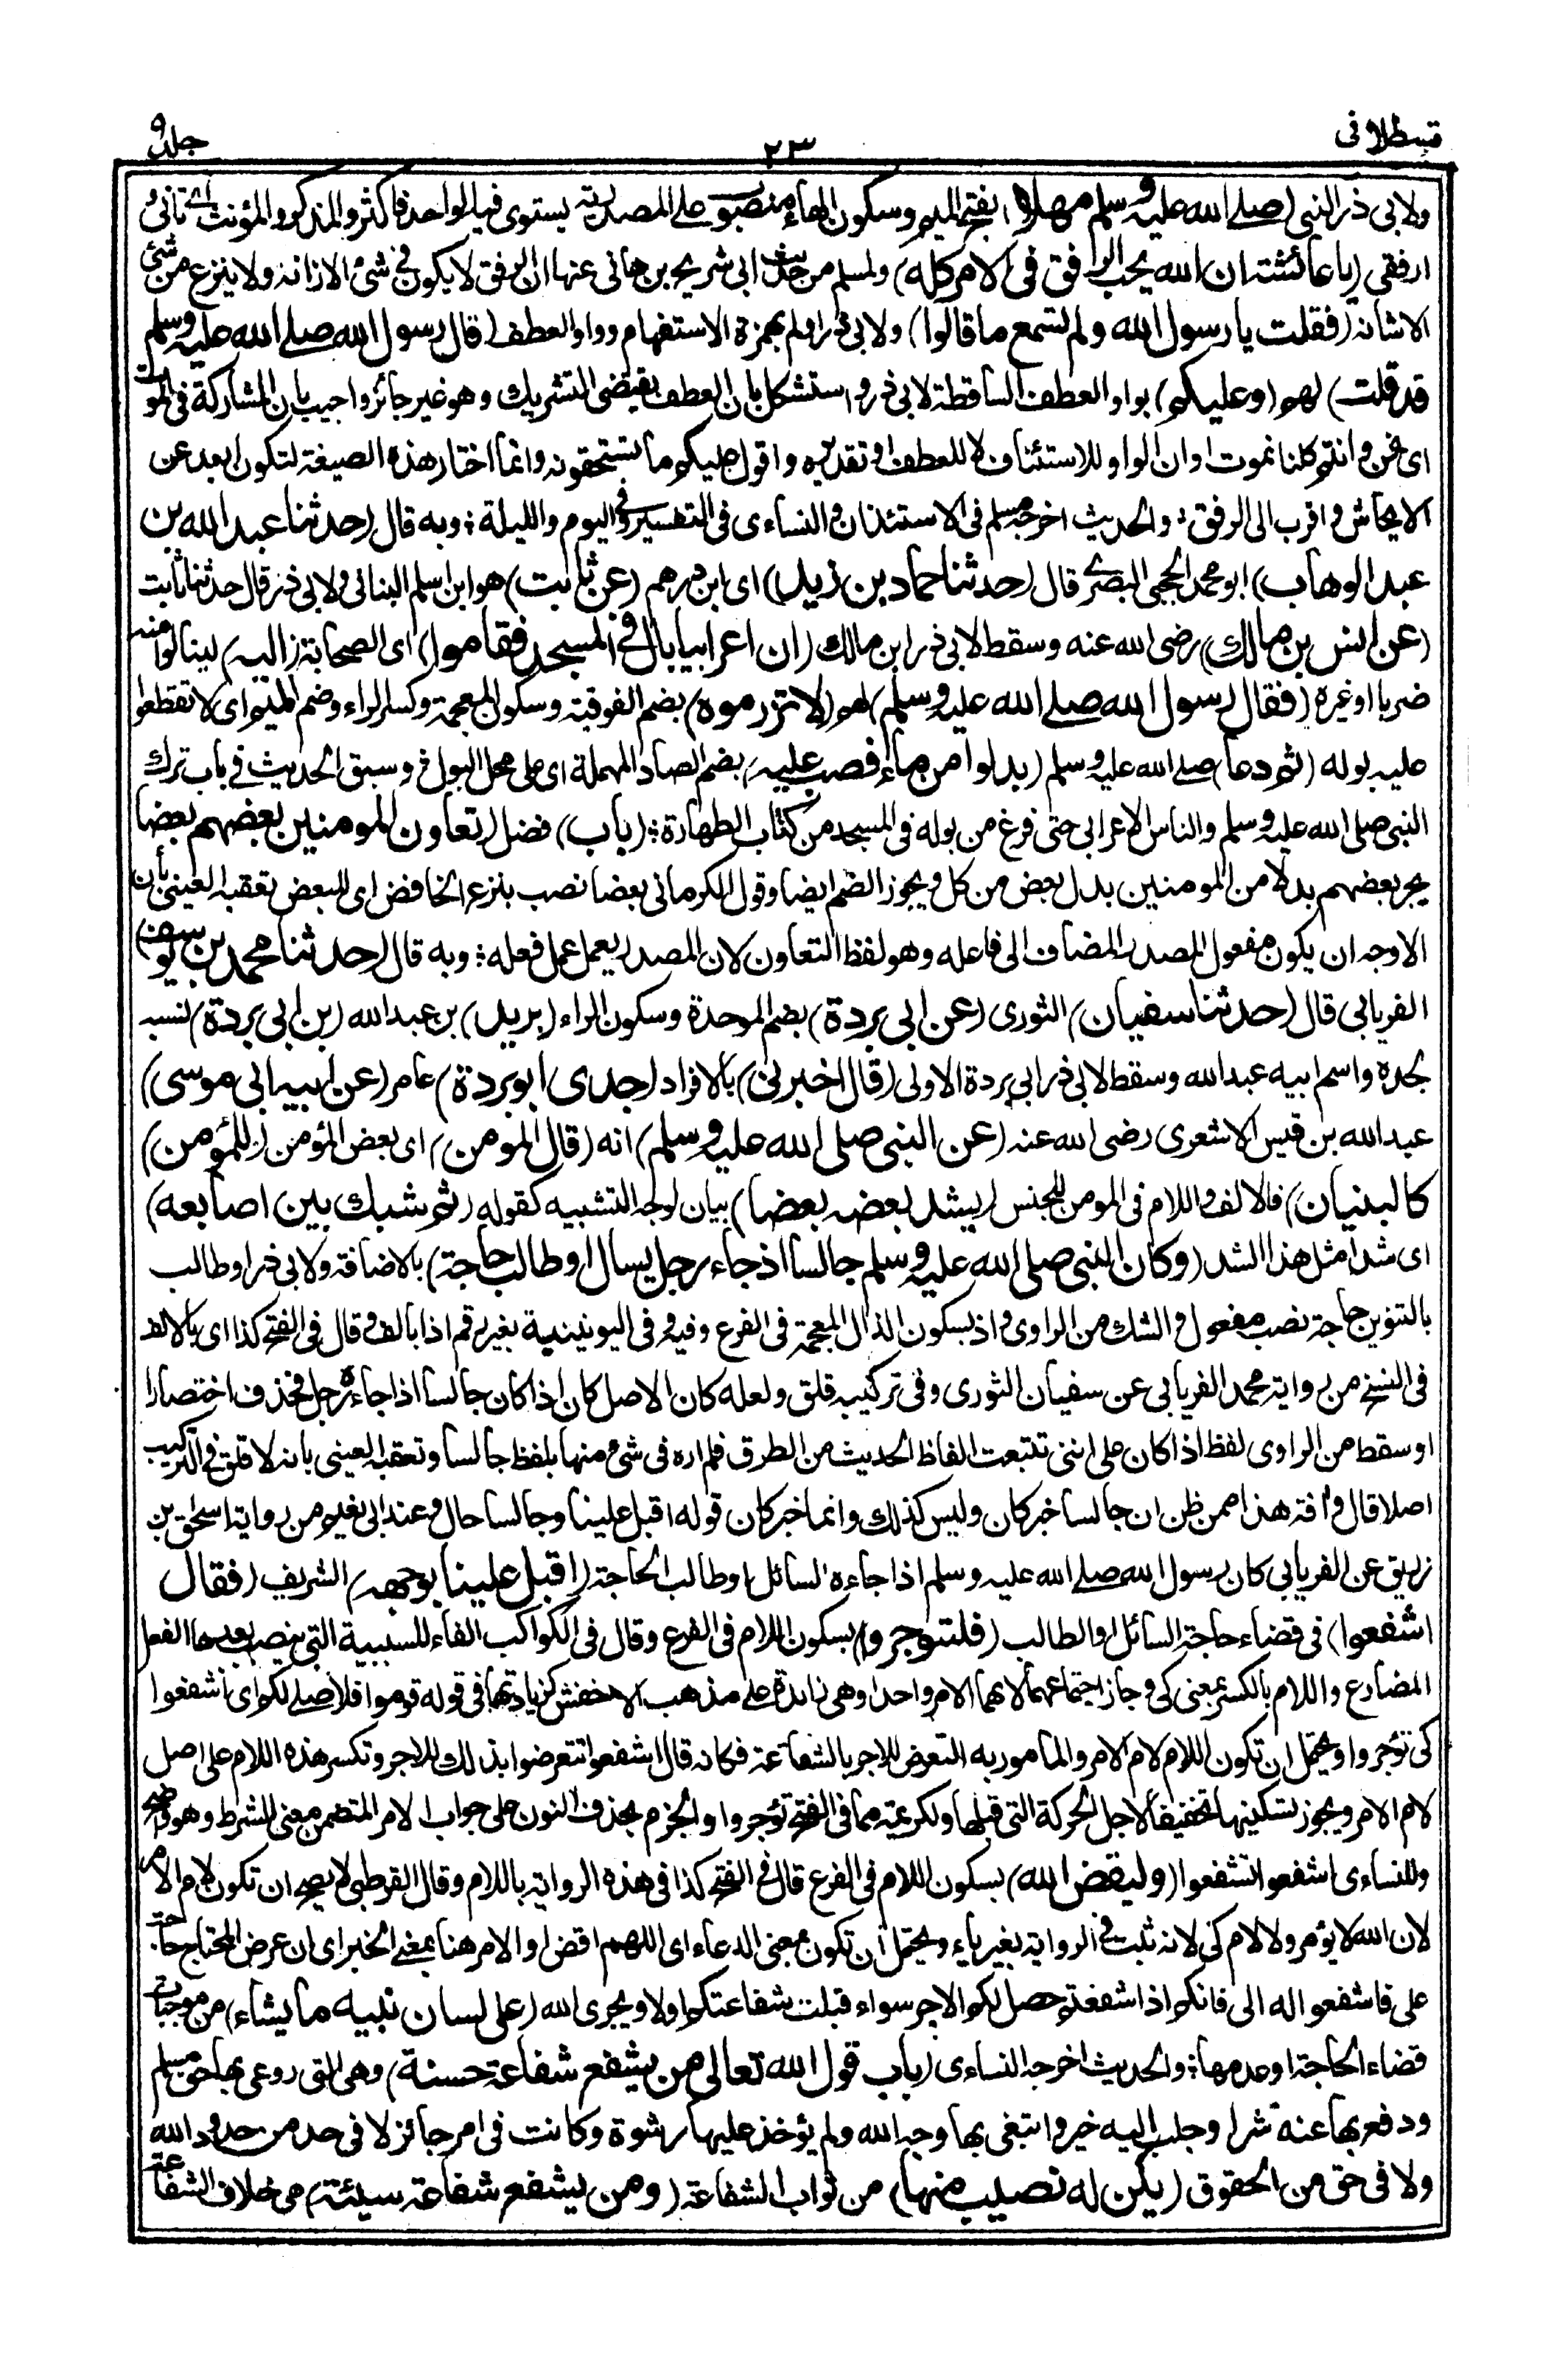 قسطلانی
٢٣
جلد ٩
ولابی ذر النبی (صلے الله علیه وسلم مهلا) بفتح المیم وسکون الهاء منصوب علے المصدریة یستوی فیه الواحد فاکثر والمذکر والمؤنث ای تانی و
ارفقی (یا عائشة ان الله یحب الرفق فی الامر کله) ولمسلم من حدیث ابی شریح بن هانی عنها ان الرفق لا یکون فی شئ الا زانه ولا ینزع من شئ
الا شانه (فقلت یا رسول الله ولم تسمع ما قالوا) ولابی ذر اولم بهمزة الاستفهام وواو العطف (قال رسول الله صلے الله علیه وسلم
قد قلت) لهم (وعلیکم) بواو العطف الساقطة لابی ذر واستشکل بان العطف یقتضی التشریك وهو غیر جائز واجیب بان المشارکة فی الموت
ای نحن وانتم کلنا نموت او ان الواو للاستئناف لا للعطف او تقدیره واقول علیکم ما تستحقونه وانما اختار هذه الصیغة لتکون ابعد عن
الایحاش واقرب الی الرفق ؛ والحدیث اخرجه مسلم فی الاستئذان والنساءی فی التفسیر وفی الیوم واللیلة ؛ وبه قال (حدثنا عبد الله بن
عبد الوهاب) ابو محمد الحجبی البصری قال (حدثنا حماد بن زید) ای ابن درهم (عن ثابت) هو ابن اسلم البنانی ولابی ذر قال حدثنا ثابت
(عن انس بن مالك) رضی الله عنه وسقط لابی ذر ابن مالك (ان اعرابیا بال فی المسجد فقاموا) ای الصحابة (الیه) لینالوا منه
ضربا او غیره (فقال رسول الله صلے الله علیه وسلم) لهم (لا تزرموه) بضم الفوقیة وسکون المعجمة وکسر الراء وضم المیم ای لا تقطعوا
علیه بوله (ثم دعا) صلے الله علیه وسلم (بدلو من ماء فصب علیه) بضم الصاد المهملة ای علی محل البول ؛ وسبق الحدیث فی باب ترك
النبی صلی الله علیه وسلم والناس الاعرابی حتی فرغ من بوله فی المسجد من کتاب الطهارة ؛ (باب) فضل (تعاون المومنین بعضهم بعضا
بجر بعضهم بدلا من المومنین بدل بعض من کل ویجوز الضم ایضا وقول الکرمانی بعضا نصب بنزع الخافض ای للبعض تعقبه العینی بان
الاوجه ان یکون مفعول المصدر المضاف الی فاعله وهو لفظ التعاون لان المصدر یعمل عمل فعله ؛ وبه قال (حدثنا محمد بن یوسف)
الفریابی قال (حدثنا سفیان) الثوری (عن ابی بردة) بضم الموحدة وسکون الراء (برید) بن عبد الله (بن ابی بردة) نسبه
لجده واسم ابیه عبد الله وسقط لابی ذر ابی بردة الاولی (قال اخبرنی) بالافراد (جدی ابو بردة) عامر (عن ابیه ابی موسی)
عبد الله بن قیس الاشعری رضی الله عنه (عن النبی صلی الله علیه وسلم) انه (قال المومن) ای بعض المؤمن (للمؤمن)
کالبنیان) فالالف واللام فی المومن للجنس (یشد بعضه بعضا) بیان لوجه التشبیه کقوله (ثم شبك بین اصابعه)
ای شدا مثل هذا الشد (وکان النبی صلی الله علیه وسلم جالسا اذ جاء رجل یسال او طالب حاجة) بالاضافة ولابی ذر او طالب
بالتنوین حاجة نصب مفعول والشك من الراوی واذ بسکون الذال المعجمة فی الفرع وفیه وفی الیونینیة بغیر رقم اذا بالف وقال فی الفتح کذا ای بالالف
فی النسخ من روایة محمد الفریابی عن سفیان الثوری وفی ترکیبه قلق ولعله کان الاصل کان اذا کان جالسا اذا جاءه رجل فحذف اختصارا
او سقط من الراوی لفظ اذا کان علی اننی تتبعت الفاظ الحدیث من الطرق فلم اره فی شئ منها بلفظ جالسا وتعقبه العینی بانه لا قلق فی الترکیب
اصلا قال وآفة هذا ممن ظن ان جالسا خبر کان ولیس کذلك وانما خبر کان قوله اقبل علینا وجالسا حال وعند ابی نعیم من روایة اسحق بن
زریق عن الفریابی کان رسول الله صلے الله علیه وسلم اذا جاءه السائل او طالب الحاجة (اقبل علینا بوجهه) الشریف (فقال
اشفعوا) فی قضاء حاجة السائل او الطالب (فلتوجروا) بسکون اللام فی الفرع وقال فی الکواکب الفاء للسببیة التی ینصب بعدها الفعل
المضارع واللام بالکسر بمعنی کی وجاز اجتماعهما لانهما لامر واحد او هی زائدة علے مذهب الاخفش کزیادتها فی قوله قوموا فلاصلے لکم ای اشفعوا
کی تؤجروا ویحتمل ان تکون اللام لام الامر والمامور به التعرض للاجر بالشفاعة فکانه قال اشفعوا تتعرضوا بذلك للاجر وتکسر هذه اللام علی اصل
لام الامر ویجوز تسکینها تخفیفا لاجل الحرکة التی قبلها ولکریمة مما فی الفتح تؤجروا والجزم بحذف النون علی جواب الامر المتضمن معنی الشرط وهو واضح
وللنساءی اشفعوا تشفعوا (ولیقض الله) بسکون اللام فی الفرع قال فی الفتح کذا فی هذه الروایة باللام وقال القرطبی لا یصح ان تکون لام الامر
لان الله لا یؤمر ولا لام کی لانه ثبت فی الروایة بغیر یاء ویحتمل ان تکون بمعنی الدعاء ای اللهم اقض او الامر هنا بمعنی الخبر ای ان عرض المحتاج حاجته
علی فاشفعوا له الی فانکم اذا شفعتم حصل لکم الاجر سواء قبلت شفاعتکم او لا ویجری الله (علی لسان نبیه ما یشاء) من موجبات
قضاء الحاجة او عدمها ؛ والحدیث اخرجه النساءی (باب قول الله تعالی من یشفع شفاعة حسنة) وهی التی روعی بها حق مسلم
ودفع بها عنه شرا وجلب الیه خیر وابتغی بها وجه الله ولم یؤخذ علیها رشوة وکانت فی امر جائز لا فی حد من حدود الله
ولا فی حق من الحقوق (یکن له نصیب منها) من ثواب الشفاعة (ومن یشفع شفاعة سیئة) هی خلاف الشفاعة